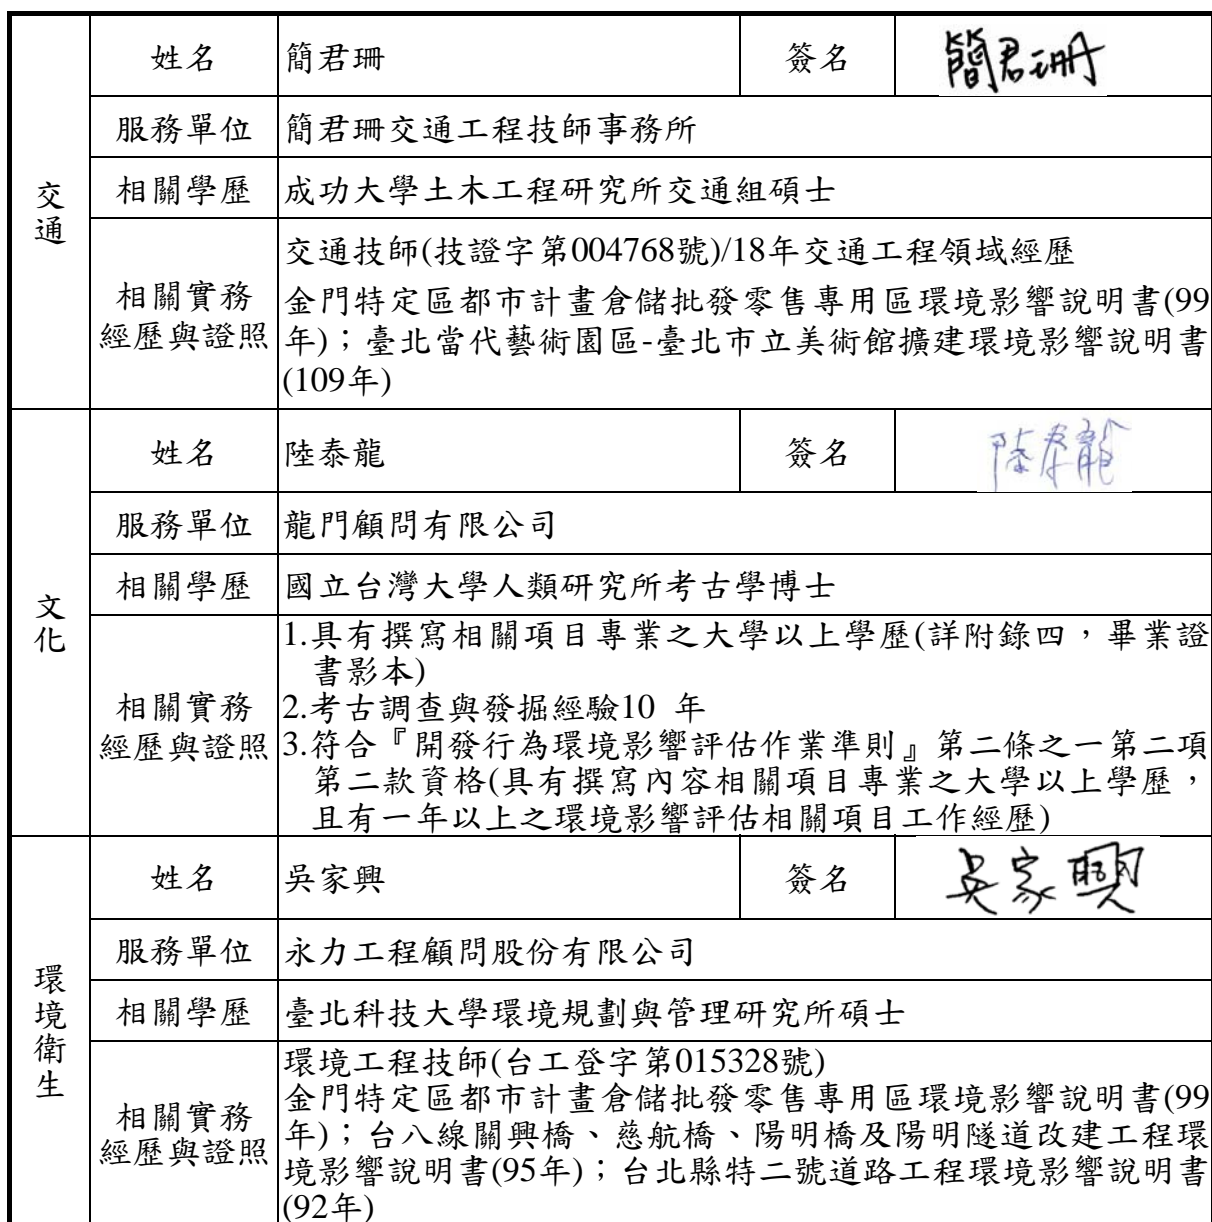 交通
姓名 簡君珊 簽名 簡君珊
服務單位 簡君珊交通工程技師事務所
相關學歷 成功大學土木工程研究所交通組碩士
相關實務
經歷與證照
交通技師(技證字第004768號)/18年交通工程領域經歷
金門特定區都市計畫倉儲批發零售專用區環境影響說明書(99
年)；臺北當代藝術園區-臺北市立美術館擴建環境影響說明書
(109年)
文化
姓名 陸泰龍 簽名 陸泰龍
服務單位 龍門顧問有限公司
相關學歷 國立台灣大學人類研究所考古學博士
相關實務
經歷與證照
1.具有撰寫相關項目專業之大學以上學歷(詳附錄四，畢業證
書影本)
2.考古調查與發掘經驗10 年
3.符合『開發行為環境影響評估作業準則』第二條之一第二項
第二款資格(具有撰寫內容相關項目專業之大學以上學歷，
且有一年以上之環境影響評估相關項目工作經歷)
環境衛生
姓名 吳家興 簽名 吳家興
服務單位 永力工程顧問股份有限公司
相關學歷 臺北科技大學環境規劃與管理研究所碩士
相關實務
經歷與證照
環境工程技師(台工登字第015328號)
金門特定區都市計畫倉儲批發零售專用區環境影響說明書(99
年)；台八線關興橋、慈航橋、陽明橋及陽明隧道改建工程環
境影響說明書(95年)；台北縣特二號道路工程環境影響說明書
(92年)